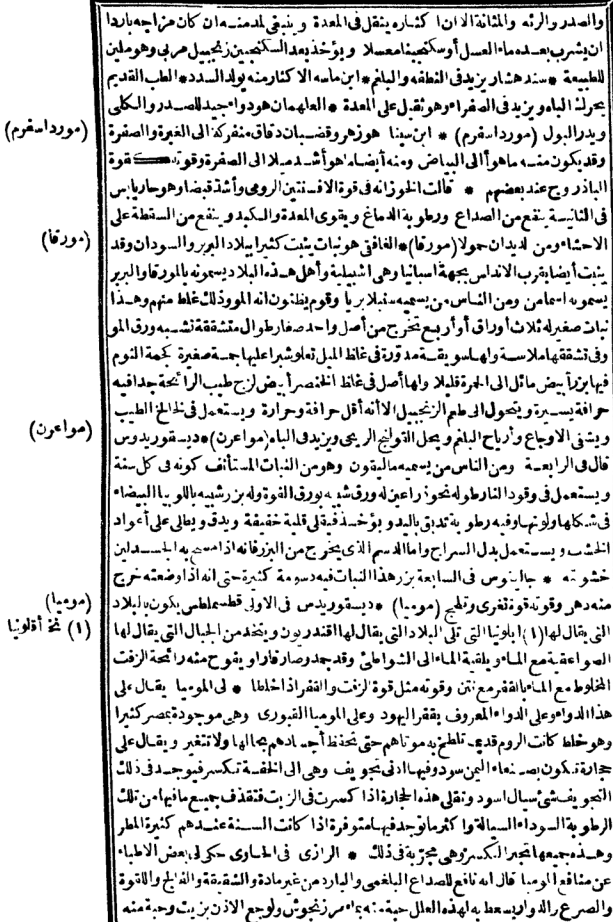 والصدر والرئه والمثانة الا ان اكثاره يثقل فى المعدة وينبغى لمدمنه ان كان مزاجه باردا
ان يشرب بعده ماء العسل أو سكنجبينا معسلا ويؤخذ بعد السكنجبين زنجبيل مربى وهو ملين
للطبيعة * سندهشار يزيد فى النطفة والبلغم * ابن ماسه الاكثار منه يولد السدد * الطب القديم
يحرك الباه ويزيد فى الصفراء وهو ثقيل على المعدة * الغلهمان هو دواء جيد للصدر والكلى
ويدر البول (مورداسفرم) * ابن سينا هو زهر وقضبان دقاق متفركة الى الغبرة والصفرة
(مورداسفرم)
وقد يكون منه ما هو الى البياض ومنه أيضا ما هو أشد ميلا الى الصفرة وقوته كقوة
الباذروج عند بعضهم * قالت الخوز انه فى قوة الافسنتين الرومى وأشد قبضا وهو حار يابس
فى الثانية ينفع من الصداع ورطوبة الدماغ ويقوى المعدة والكبد وينفع من السقطة على
الاحشاء ومن الديدان حمولا (مورقا) * الغافقى هو نبات ينبت كثيرا ببلاد البربر والسودان وقد
(مورقا)
ينبت أيضا بقرب الاندلس بجهة اسبانيا وهى اشبيلية وأهل هذه البلاد يسمونه بالمورقا والبربر
يسمونه اسمامن ومن الناس من يسميه سنبلا بريا وقوم يظنون انه المو وذلك غلط منهم وهذا
نبات صغير له ثلاث أوراق أو أربع تخرج من أصل واحد صغار طوال متشققة تشبه ورق المو
وفى تشققها ملاسة ولها سويقة مدورة فى غلظ الميل تعلو شبرا عليها جمة صغيرة كجمة الثوم
فيها بزر أبيض مائل الى الحمرة قليلا ولها أصل فى غلظ الخنصر أبيض لزج طيب الرائحة جدا فيه
حرافة يسيرة ويتحول الى طعم الزنجبيل الا أنه أقل حرافة وحرارة ويستعمل فى لخالخ الطيب
ويشفى الاوجاع وأرياح البلغم ويحل القولنج الريحى ويزيد فى الباه (مواعرن) * ديسقوريدوس
(مواعرن)
قال فى الرابعة ومن الناس من يسميه ماليقون وهو من النبات المستأنف كونه فى كل سنة
ويستعمل فى وقود النار طوله نحو ذراعين له ورق شبيه بورق الفوة وله بزر شبيه باللوبيا البيضاء
فى شكلها ولونها وفيه رطوبة تدبق باليد ويؤخذ فيقلى قلية خفيفة ويدق ويطلى على أعواد
الخشب ويستعمل بدل السراج واما الدسم الذى يخرج من البزر فانه اذا مسح به الجسد لين
خشونته * جالينوس فى السابعة بزر هذا النبات فيه دسومة كثيرة حتى انه اذا وضعته خرج
منه دهن وقوته قوة تغرى وتلجج (موميا) * ديسقوريدس فى الاولى قطسمالطس يكون بالبلاد
(موميا)
التى يقال لها (١) ابلونيا التى تلى البلاد التى يقال لها اقندريون ويتخذ من الجبال التى يقال لها
(١) نخ أقلونيا
الصواعقية مع الماء ويلقيه الماء الى الشواطئ وقد جمد وصار قارا ويفوح منه رائحة الزفت
المخلوط مع الماء بالقفر مع نتن وقوته مثل قوة الزفت والقفر اذا خلطا * لى الموميا يقال على
هذا الدواء وعلى الدواء المعروف بقفر اليهود وعلى الموميا القبورى وهى موجودة بمصر كثيرا
وهو خلط كانت الروم قديما تلطخ به موتاهم حتى تحفظ أجسادهم بحالها ولا تتغير ويقال على
حجارة تكون بصنعاء اليمن سود وفيها ادنى تجويف وهى الى الخفة تكسر فيوجد فى ذلك
التجويف شئ سيال اسود وتقلى هذه الحجارة اذا كسرت فى الزيت فتقذف جميع ما فيها من تلك
الرطوبة السوداء السيالة واكثر ما توجد فيها متوفرة اذا كانت السنة عندهم كثيرة المطر
وهذه جميعها تجبر الكسر وهى مجربة فى ذلك * الرازى فى الحاوى حكى لى بعض الاطباء
عن منافع الموميا قال انه نافع للصداع البلغمى والبارد من غير مادة والشقيقة والفالج واللقوة
والصرع والدوار يسعط به لهذه العلل حبة منه بماء مرزنجوش ولوجع الاذن بزيت وحبة منه